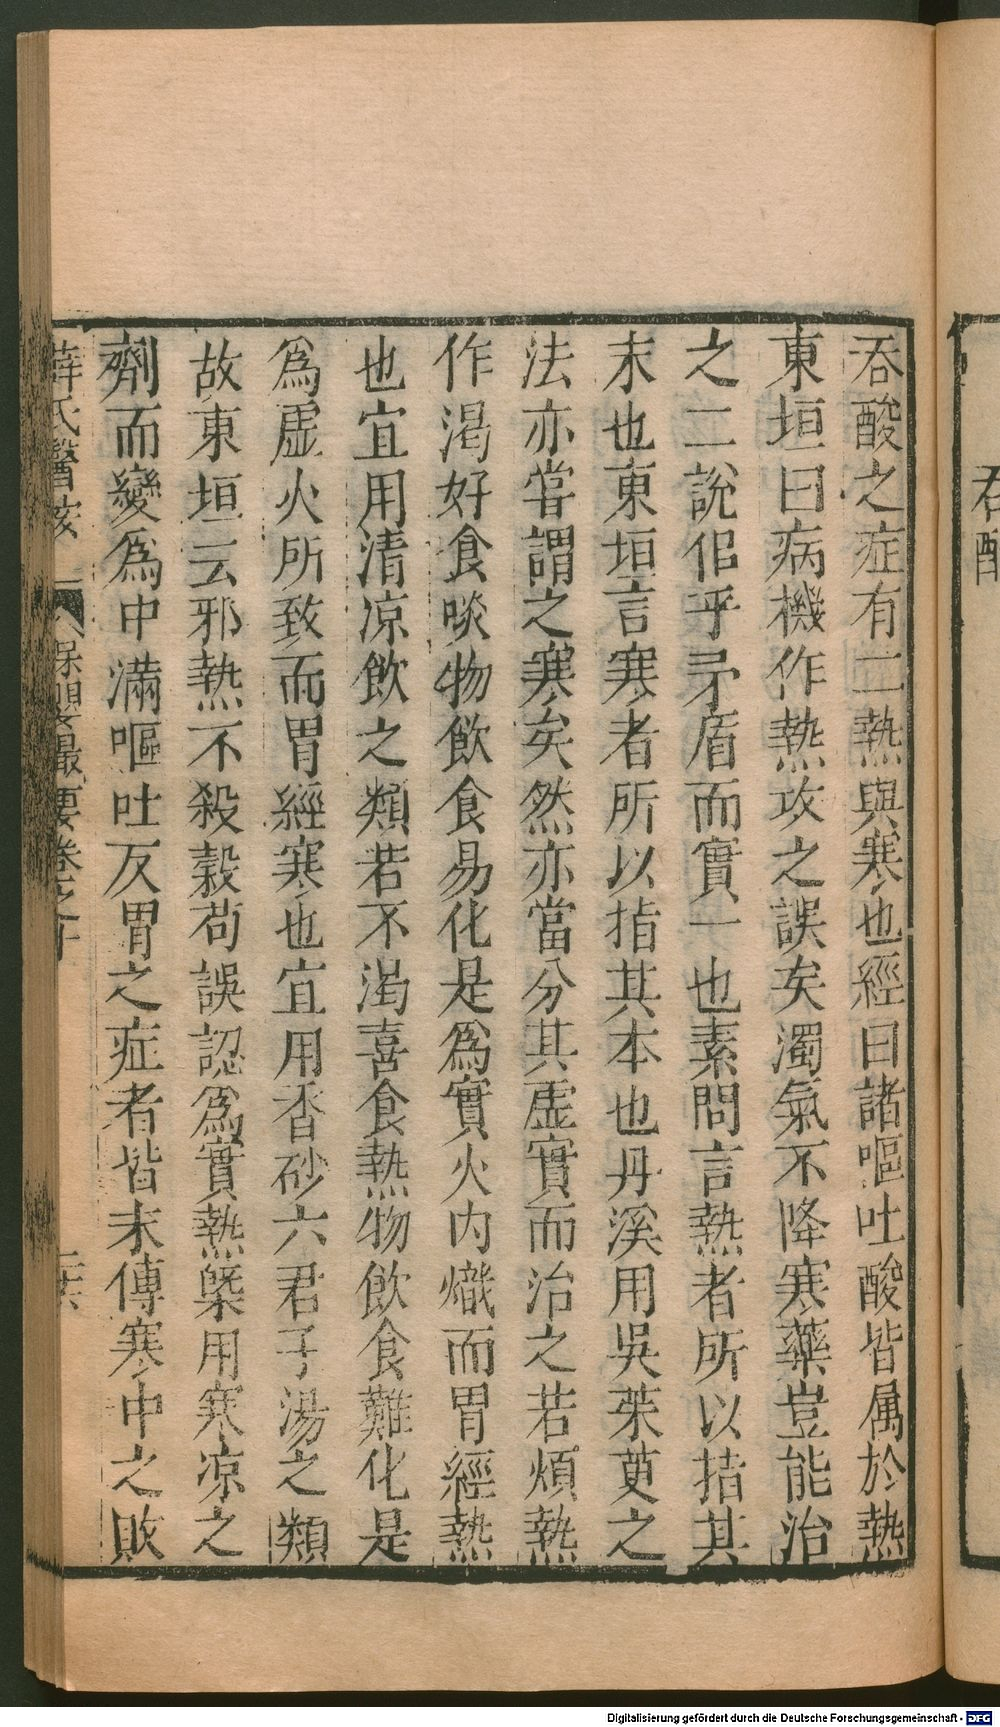 吞酸
吞酸之症有二熱與寒也經曰諸嘔吐酸皆属於熱
東垣曰病機作熱攻之誤矣濁氣不降寒藥豈能治
之二說佀乎矛盾而實一也素問言熱者所以指其
末也東垣言寒者所以指其本也丹溪用吳茱萸之
法亦嘗謂之寒矣然亦當分其虛實而治之若煩熱
作渴好食啖物飲食易化是爲實火内熾而胃經熱
也宜用清凉飲之類若不渴喜食熱物飲食難化是
爲虛火所致而胃經寒也宜用香砂六君子湯之類
故東垣云邪熱不殺穀苟誤認爲實熱槩用寒凉之
劑而變爲中滿嘔吐反胃之症者皆末傳寒中之敗
薛氏醫按 保嬰撮要卷之十 二六
Digitalisierung gefördert durch die Deutsche Forschungsgemeinschaft - DFG